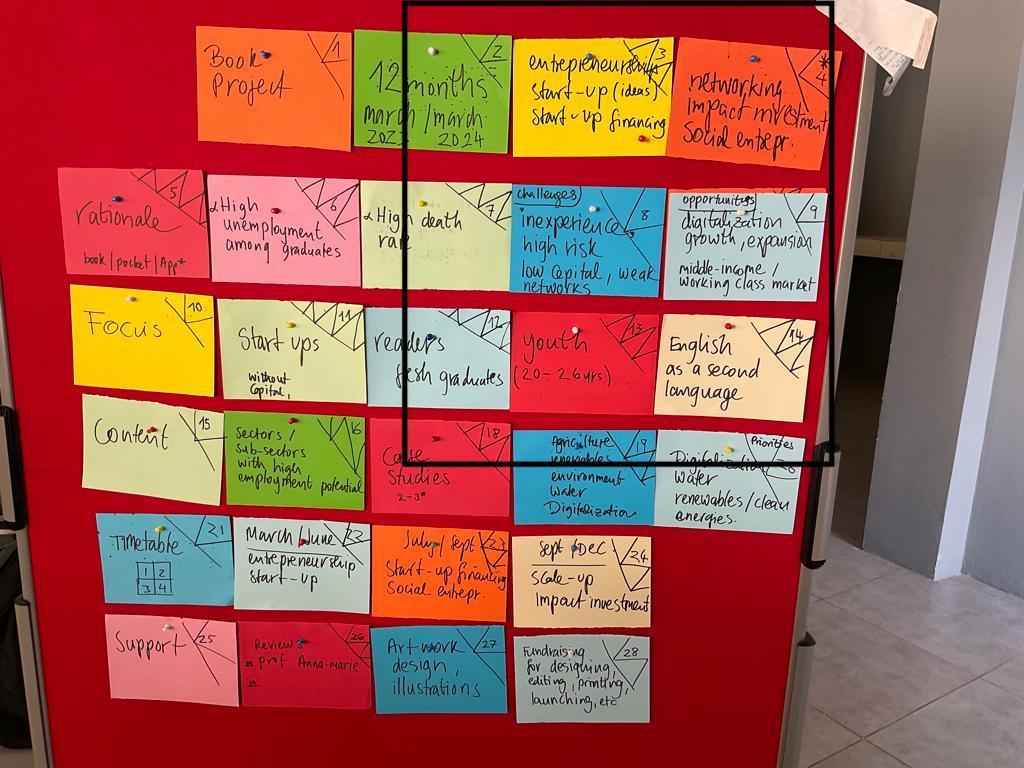 Book
Project
1
12 months
march / march
2023 2024
2
entrepreneurship
start-up (ideas)
start-up financing
3
networking
impact investment
Social entrepr.
*4
rationale
book / pocket / App*
5
High
unemployment
among graduates
6
High death
rate
7
challenges
inexperience,
high risk
low capital, weak
networks
8
opportunities
digitalization
growth, expansion
middle-income /
working class market
9
Focus
10
Start ups
without
Capital,
11
readers
fresh graduates
12
youth
(20 - 26 yrs)
13
English
as a second
language
14
Content
15
Sectors /
sub-sectors
with high
employment potential
16
Case
Studies
2-3*
18
Agriculture
renewables
environment
Water
Digitalization
19
Priorities
Digitalization
Water
renewables / clean
energies.
20
TIMETABLE
1 2
3 4
21
March / June
entrepreneurship
start-up
July / Sept
Start-up financing
Social entrepr.
23
Sept / DEC
scale-up
Impact investment
24
Support
25
Reviews
prof Anna-marie
26
Artwork
design,
illustrations
27
Fundraising
for designing,
editing, printing,
launching, etc
28